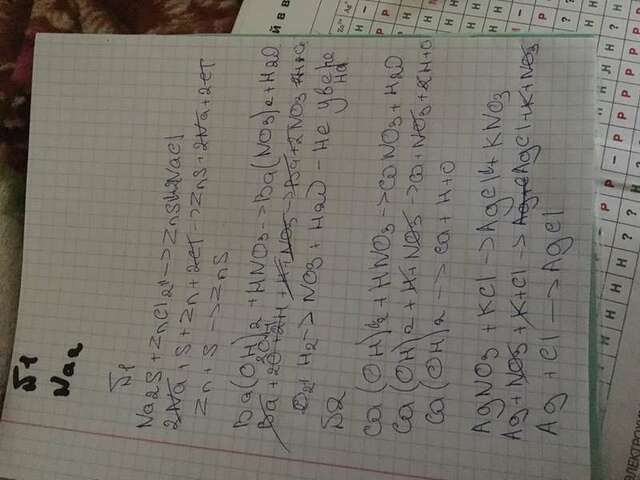 Б1
Na2
Б1
Na2S + ZnCl2 -> ZnS + 2NaCl
2Na + S + Zn + 2Cl -> ZnS + 2Na + 2Cl
Zn + S -> ZnS
Ba(OH)2 + HNO3 -> Ba(NO3)2 + H2O
Ba + 2OH + H + NO3 -> Ba + 2NO3
O2 + H2 -> NO3 + H2O - не увере
на
Б2
Ca(OH)2 + HNO3 -> CaNO3 + H2O
Ca(OH)2 + H + NO3 -> Ca + NO3 + 2H + O
Ca(OH)2 -> Ca + H + O
AgNO3 + KCl -> AgCl + KNO3
Ag + NO3 + K + Cl -> AgCl + K + NO3
Ag + Cl -> AgCl